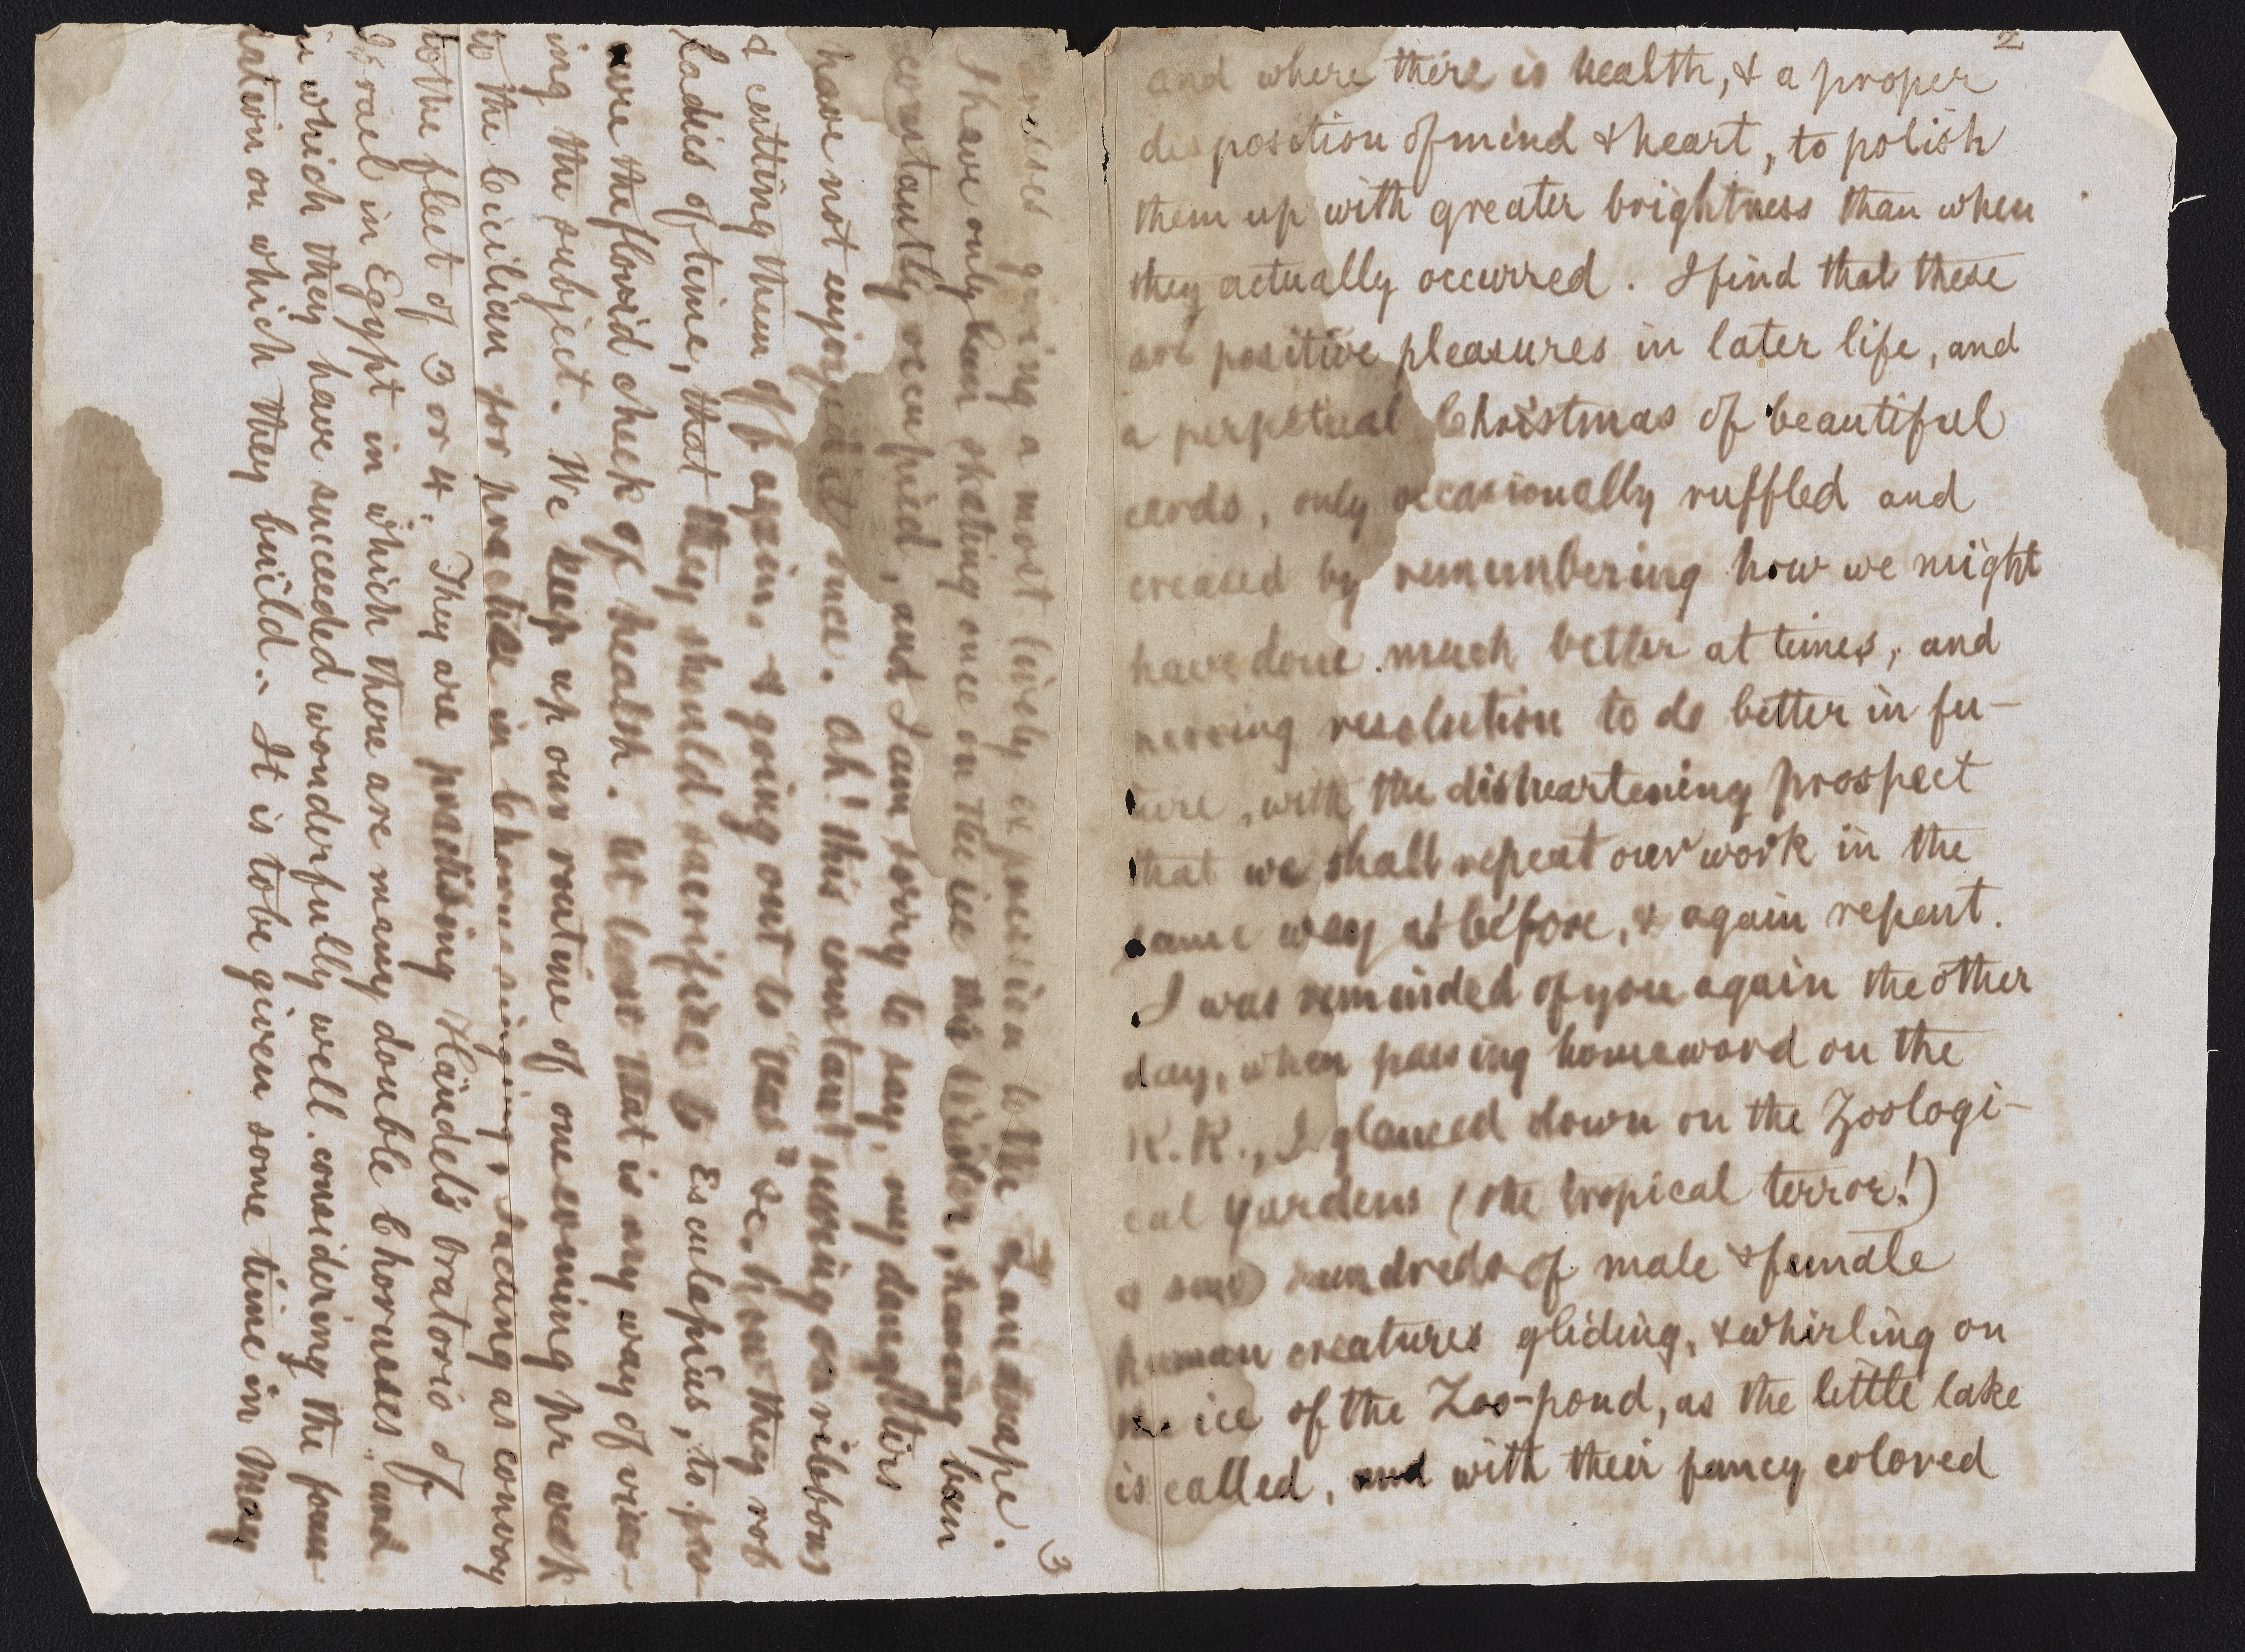 2
and where there is health, & a proper
disposition of mind & heart, to polish
them up with greater brightness than when
they actually occurred. I find that these
are positive pleasures in later life, and
a perpetual Christmas of beautiful
cards, only occasionally ruffled and
creased by remembering how we might
have done much better at times, and
nerving resolution to do better in fu-
ture, with the disheartening prospect
that we shall repeat our work in the
same way as before, & again repent.
I was reminded of you again the other
day, when passing homeward on the
R.R., I glanced down on the Zoologi-
cal gardens (the tropical terror!)
& saw hundreds of male & female
human creatures gliding, & whirling on
the ice of the Zoo-pond, as the little lake
is called, and with their fancy colored
3
dresses giving a most lively expression to the Landscape.
I have only been skating once on the ice this winter, having been
constantly occupied, and I am sorry to say, my daughters
have not enjoyed it once. Ah! this constant using on ribbons
& cutting them off again, & going out to "teas" &c. how they rob
ladies of time, that they should sacrifice to Esculapius, to pre-
serve the florid cheek of health. At least that is my way of view-
ing the subject. We keep up our routine of one evening pr week
to the Cicilian for practice in Chorus singing, I acting as convoy
to the fleet of 3 or 4. They are practising Händel's Oratorio of
Israel in Egypt in which there are many double Choruses and
in which they have succeeded wonderfully well considering the foun-
dation on which they build. It is to be given some time in May